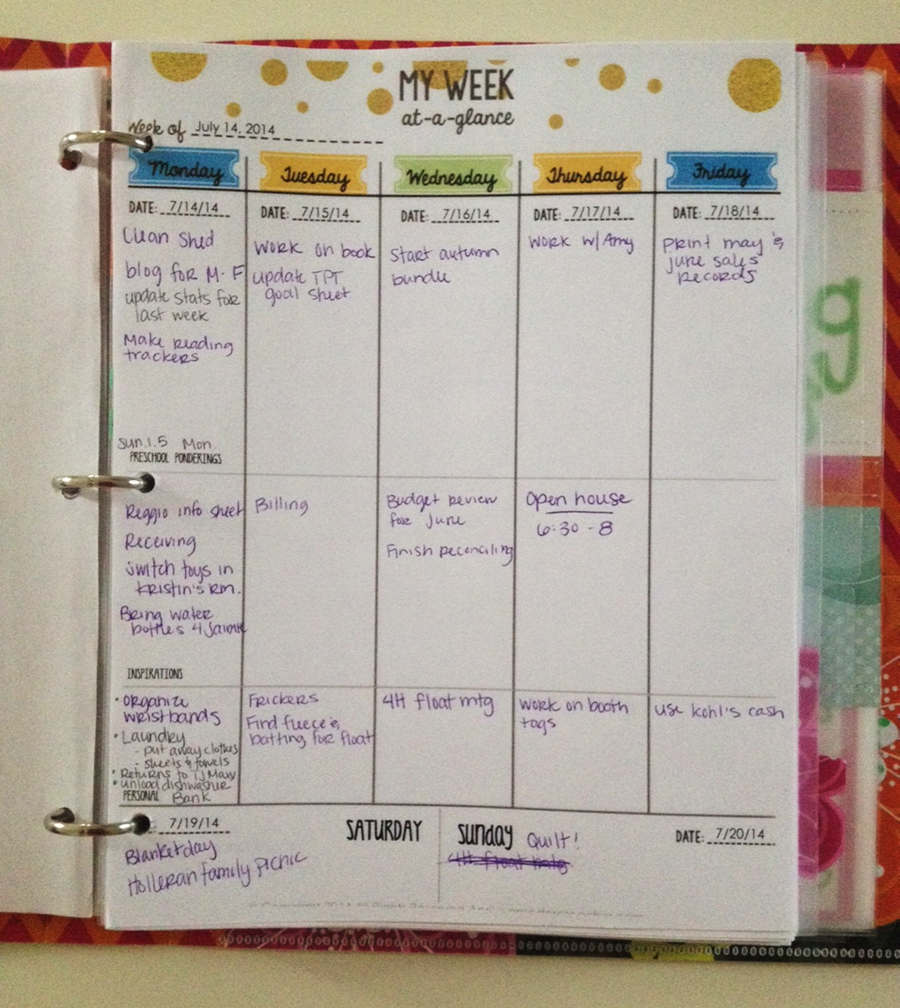 MY WEEK
at-a-glance
Week of July 14, 2014
Monday
Tuesday
Wednesday
Thursday
Friday
DATE: 7/14/14
DATE: 7/15/14
DATE: 7/16/14
DATE: 7/17/14
DATE: 7/18/14
Clean Shed
blog for M-F
update stats for
last week
Make reading
trackers
Sun. 1.5 Mon.
PRESCHOOL PONDERINGS
Work on book
update TPT
goal sheet
Start autumn
bundle
Work w/Amy
Print may's
june sales
records
Reggio info sheet
Receiving
switch toys in
Kristin's rm.
Bring water
bottles 4
INSPIRATIONS
Billing
Budget review
for June
Finish reconciling
Open house
6:30 - 8
• Organize
wristbands
• Laundry
- put away clothes
- sheets & towels
• Returns to TJ Maxx
• unload dishwasher
PERSONAL Bank
Frickers
Find fleece &
batting for float
4H float mtg
Work on booth
tags
Use Kohl's cash
: 7/19/14
SATURDAY
Blanket day
Holleran Family Picnic
Sunday Quilt!
DATE: 7/20/14
4H float mtg
g